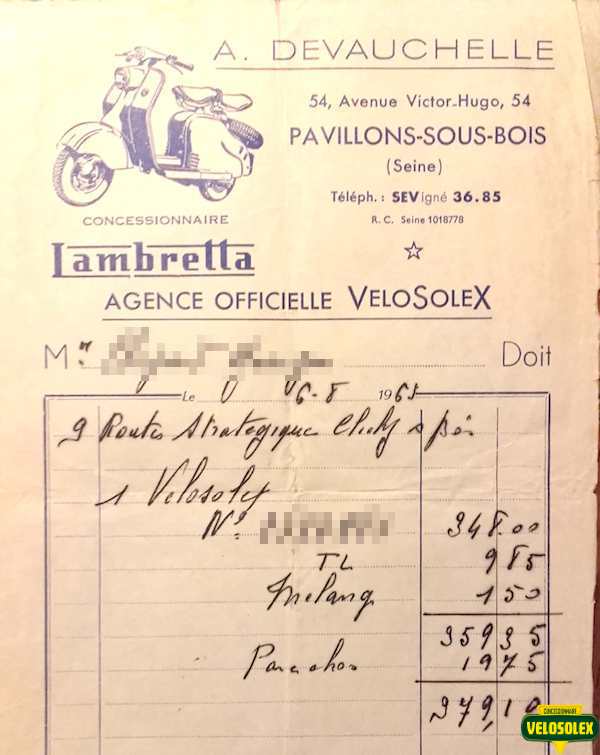 A. DEVAUCHELLE
54, Avenue Victor-Hugo, 54
PAVILLONS-SOUS-BOIS
(Seine)
Téléph. : SEVigné 36.85
R. C. Seine 1018778
CONCESSIONNAIRE
Lambretta
AGENCE OFFICIELLE VELOSOLEX
Mr Doit
Le 6-8 1965
9 Route Stratégique Clichy s
1 Velosolex
No 348.00
TL 985
Melang 150
35935
1975
379,10
CONCESSIONNAIRE
VELOSOLEX